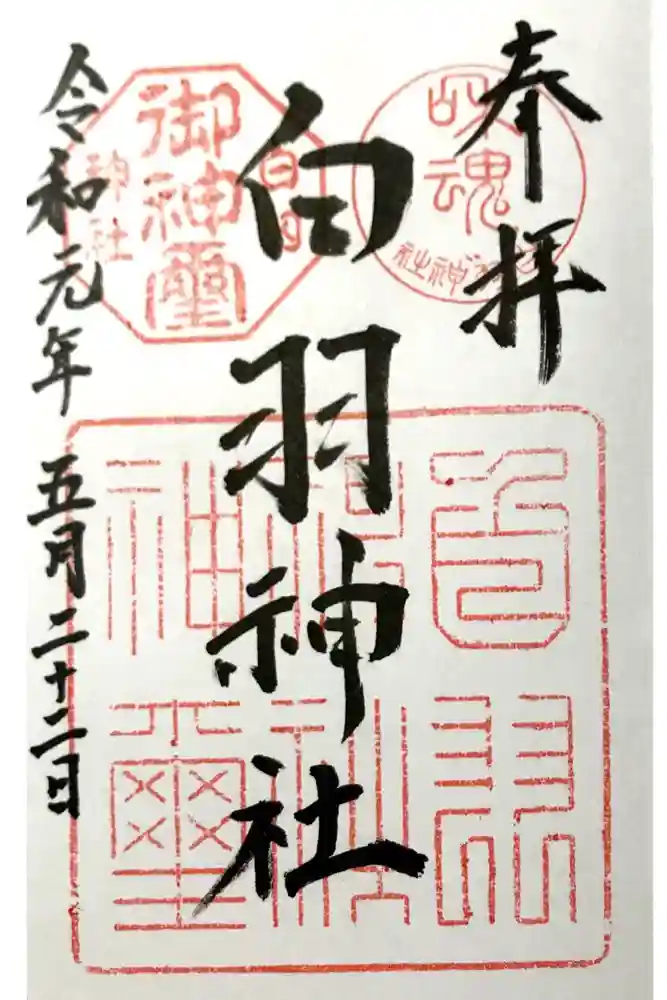 奉拝
白羽神社
令和元年 五月二十二日
御神璽
神社
白羽
神社
神璽